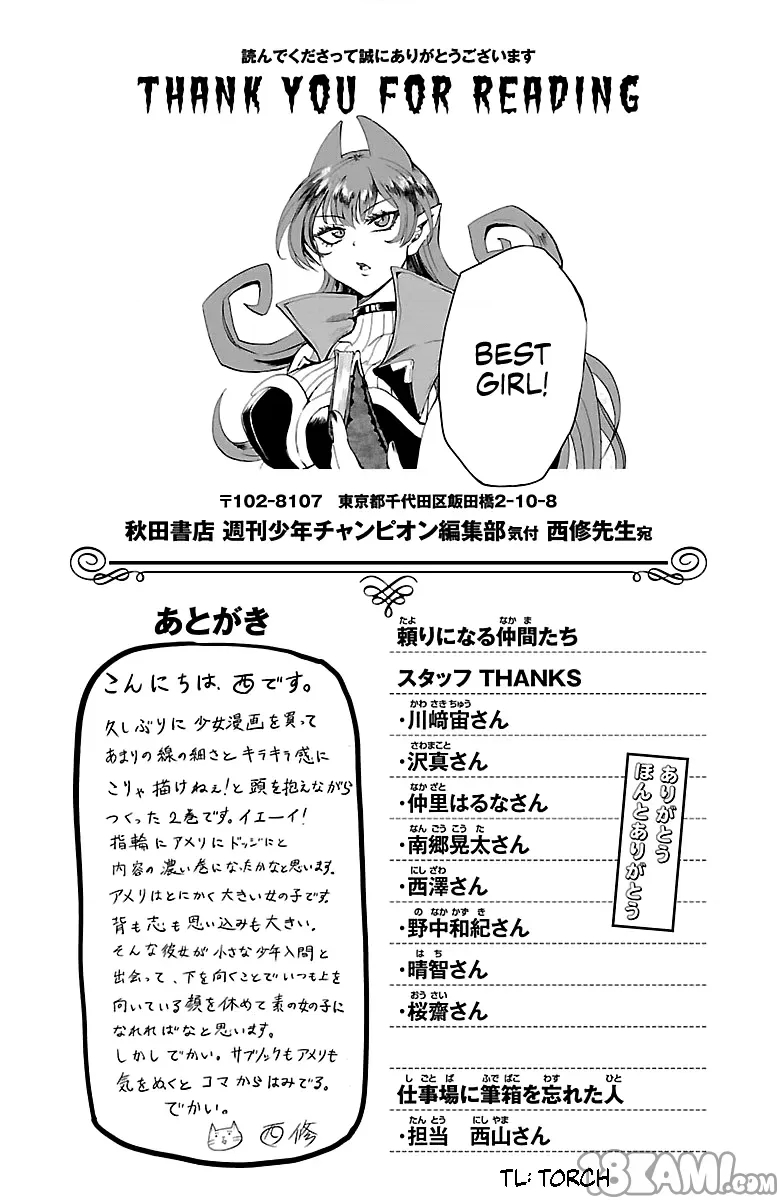 読んでくださって誠にありがとうございます
THANK YOU FOR READING
BEST
GIRL!
〒102-8107 東京都千代田区飯田橋2-10-8
秋田書店 週刊少年チャンピオン編集部気付 西修先生宛
あとがき
こんにちは、西です。
久しぶりに少女漫画を買って
あまりの線の細さとキラキラ感に
こりゃ描けねぇ!と頭を抱えながら
つくった2巻です。イエーイ!
指輪にアメリにドッジにと
内容の濃い巻になったかなと思います。
アメリはとにかく大きい女の子です。
背も志も思い込みも大きい。
そんな彼女が小さな少年入間と
出会って、下を向くことでいつも上を
向いている顔を休めて素の女の子に
なれればなと思います。
しかしでかい。サブノックもアメリも
気をぬくとコマからはみでる。
でかい。
西修
たよ なかま
頼りになる仲間たち
スタッフ THANKS
かわさきちゅう
・川﨑宙さん
さわまこと
・沢真さん
なかざと
・仲里はるなさん
なんごうこうた
・南郷晃太さん
にしざわ
・西澤さん
のなかかずき
・野中和紀さん
はち
・晴智さん
おうさい
・桜齋さん
ありがとう
ほんとありがとう
しごとば ふでばこ わす ひと
仕事場に筆箱を忘れた人
たんとう にしやま
・担当 西山さん
TL: TORCH
18KAMI.COM